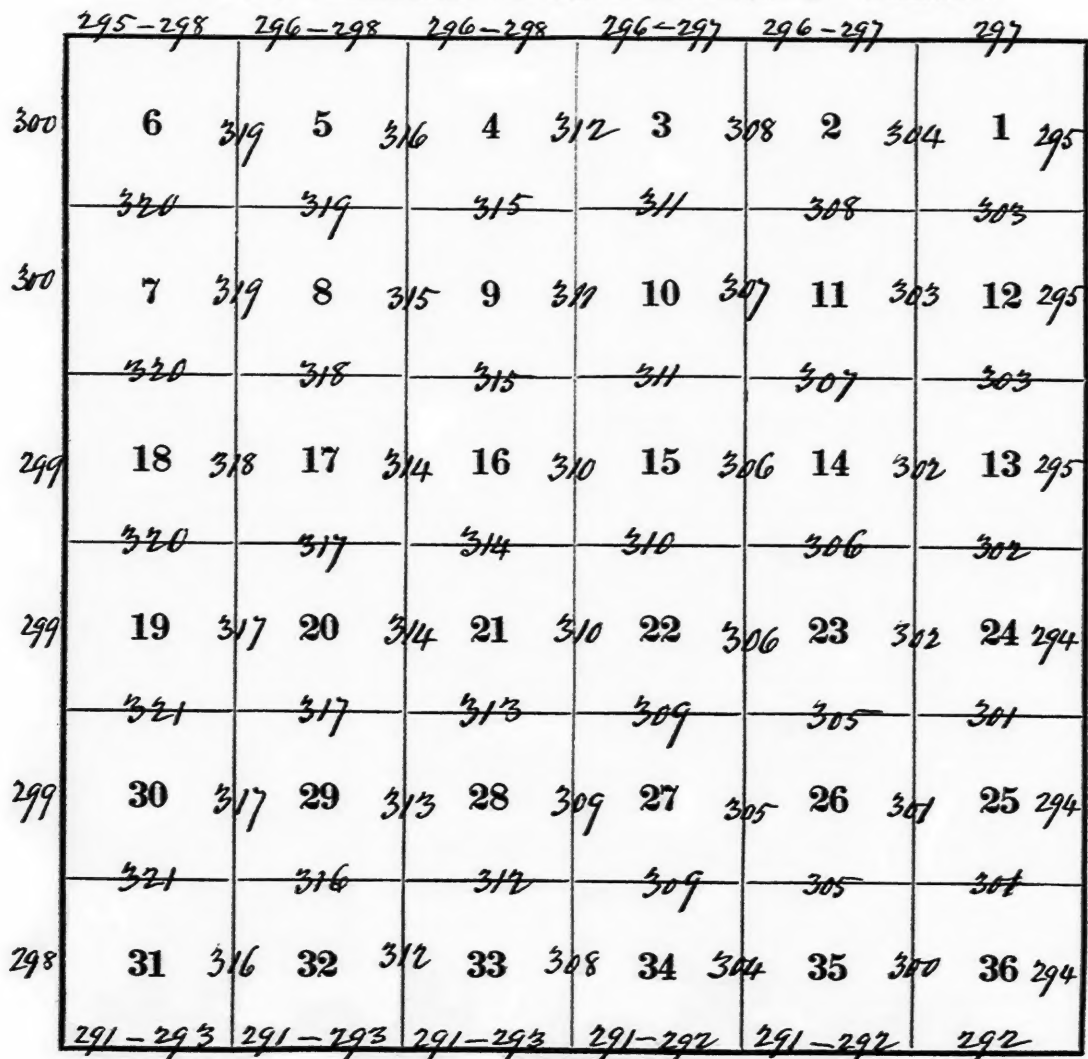 295-298 296-298 296-298 296-297 296-297 297
300 6 319 5 316 4 312 3 308 2 304 1 295
320 319 315 311 308 303
300 7 319 8 315 9 311 10 307 11 303 12 295
320 318 315 311 307 303
299 18 318 17 314 16 310 15 306 14 302 13 295
320 317 314 310 306 302
299 19 317 20 314 21 310 22 306 23 302 24 294
321 317 313 309 305 301
299 30 317 29 313 28 309 27 305 26 301 25 294
321 316 312 309 305 301
298 31 316 32 312 33 308 34 304 35 300 36 294
291-293 291-293 291-293 291-292 291-292 292